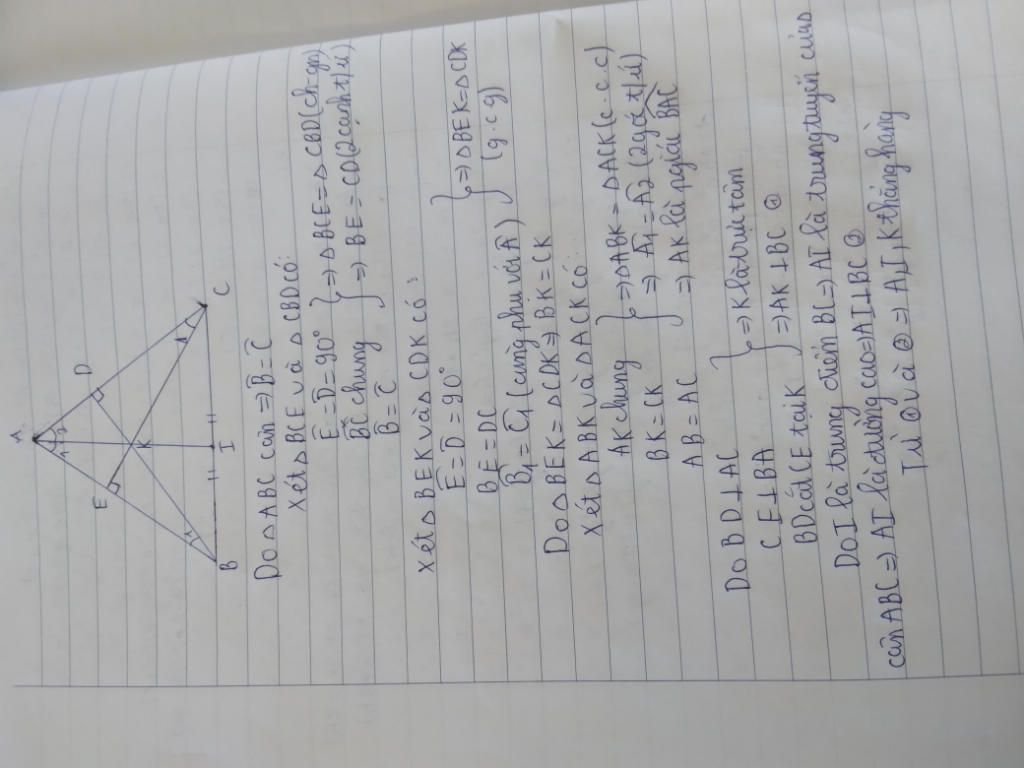 A
1 2
E
D
K
1
1
B
I
C
Do △ABC cân => B̂ = Ĉ
Xét △BCE và △CBD có:
Ê = D̂ = 90°
BC chung
B̂ = Ĉ
} => △BCE = △CBD (ch-gn)
=> BE = CD (2 cạnh t/ứ)
Xét △BEK và △CDK có:
Ê = D̂ = 90°
BE = DC
B̂1 = Ĉ1 (cùng phụ với Â)
} => △BEK = △CDK
(g.c.g)
Do △BEK = △CDK => BK = CK
Xét △ABK và △ACK có:
AK chung
BK = CK
AB = AC
} => △ABK = △ACK (c.c.c)
=> Â1 = Â2 (2 gó t/ứ)
=> AK là pgiác BAC
Do BD ⊥ AC
CE ⊥ BA
BD cắt CE tại K
} => K là trực tâm
=> AK ⊥ BC
Do I là trung điểm BC => AI là trung tuyến của
cân ABC => AI là đường cao => AI ⊥ BC
Từ và => A, I, K thẳng hàng